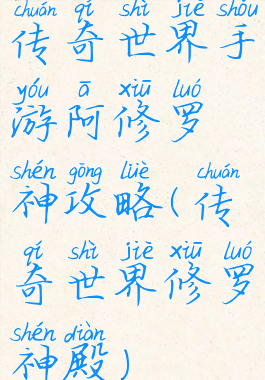 chuán qí shì jiè shǒu
传奇世界手
yóu ā xiū luó
游阿修罗
shén gōng lüè ( chuán
神攻略(传
qí shì jiè xiū luó
奇世界修罗
shén diàn
神殿)